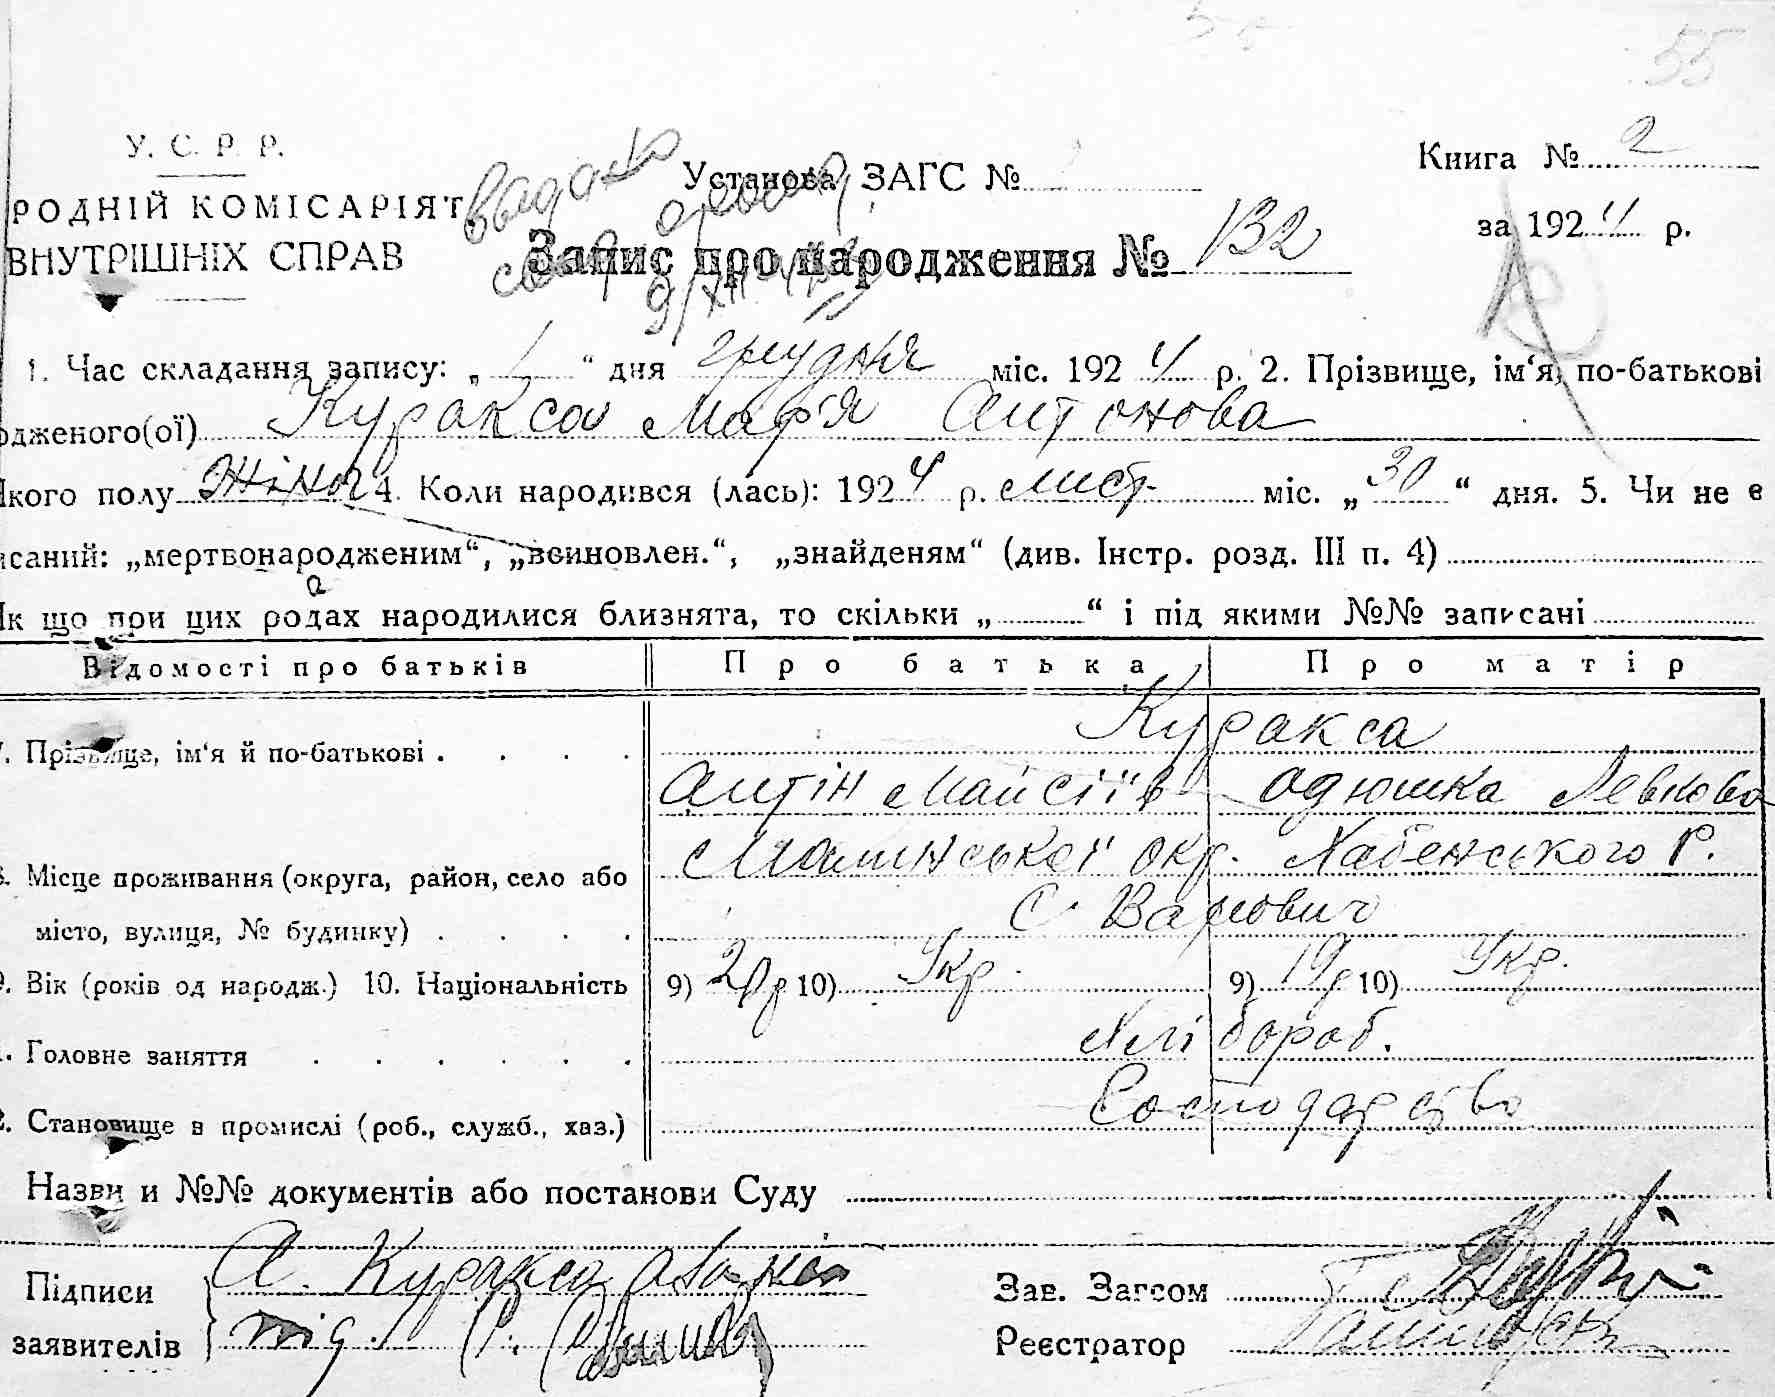 55
У. С. Р. Р.
РОДНІЙ КОМІСАРІЯТ
ВНУТРІШНІХ СПРАВ
Установа ЗАГС №
Книга № 2
за 1924 р.
Запис про народження № 132
1. Час складання запису: „ “ дня грудня міс. 1924 р. 2. Прізвище, ім‘я, по-батькові
одженого(ої) Куракса Мар'я Антонова
Якого полу жіноч 4. Коли народився (лась): 1924 р. лист. міс. „30“ дня. 5. Чи не є
исаний: „мертвонародженим“, „всиновлен.“, „знайденям“ (див. Інстр. розд. III п. 4)
Як що при цих родах народилися близнята, то скільки „ “ і під якими №№ записані
Відомості про батьків Про батька Про матір
7. Прізвище, ім‘я й по-батькові Куракса
Антін Майсіїв Одюшка Левкова
8. Місце проживання (округа, район, село або Малинської окр. Хабенського Р.
місто, вулиця, № будинку) с. Варович
9. Вік (років од народж.) 10. Національність 9) 20р 10) Укр. 9) 19р 10) Укр.
1. Головне заняття Хлібороб.
2. Становище в промислі (роб., служб., хаз.) Господарство
Назви и №№ документів або постанови Суду
Підписи А. Куракса
заявителів
Зав. Загсом
Реєстратор